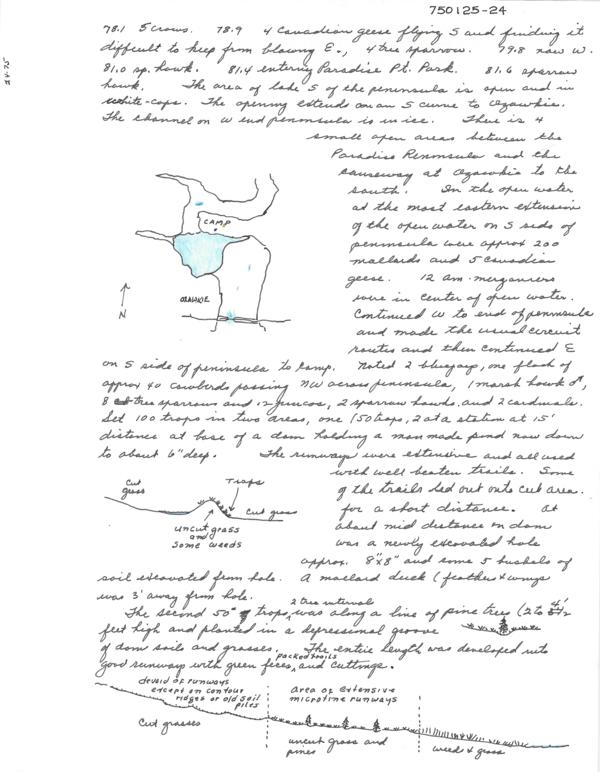 750125-24
78.1 5 crows. 78.9 4 Canadian geese flying S and finding it
difficult to keep from blowing E., 4 tree sparrow. 79.8 now W.
81.0 sp. hawk. 81.4 entering Paradise Pt. Park. 81.6 sparrow
hawk. The area of lake S of the peninsula is open and in
white-caps. The opening extends on an S curve to Ozawkie.
The channel on W end peninsula is in ice. There is 4
small open areas between the
Paradise Peninsula and the
causeway at Ozawkie to the
south. In the open water
at the most eastern extension
of the open water on S side of
peninsula were approx 200
mallards and 5 Canadian
geese. 12 am. mergansers
were in center of open water.
Continued W to end of peninsula
and made the usual circuit
routes and then continued E
CAMP
OZAWKIE
N
on S side of peninsula to camp. Noted 2 bluejays, one flock of
approx 40 cowbirds passing NW across peninsula, 1 marsh hawk ♂,
8 tree sparrows and 12 juncos, 2 sparrow hawks, and 2 cardinals.
Set 100 traps in two areas, one (50 traps, 2 at a station at 15'
distance at base of a dam holding a man made pond now down
to about 6" deep. The runways were extensive and all used
with well beaten trails. Some
of the trails led out onto cut area
for a short distance. At
about mid distance on dam
was a newly excavated hole
approx. 8"x8" and some 5 bushels of
Cut grass
Traps
Cut grass
uncut grass
and
some weeds
soil excavated from hole. A mallard duck (feathers & wings
was 3' away from hole.
The second 50 traps, 2 tree interval, was along a line of pine trees (2 to 4 1/2
feet high and planted in a depressional groove
of dom soils and grasses. The entire length was developed into
good runway with green feces, packed trails and cuttings.
devoid of runways
except on contour
ridges or old soil
piles
Area of extensive
microtine runways
Cut grasses
uncut grass and
pines
weeds & grass